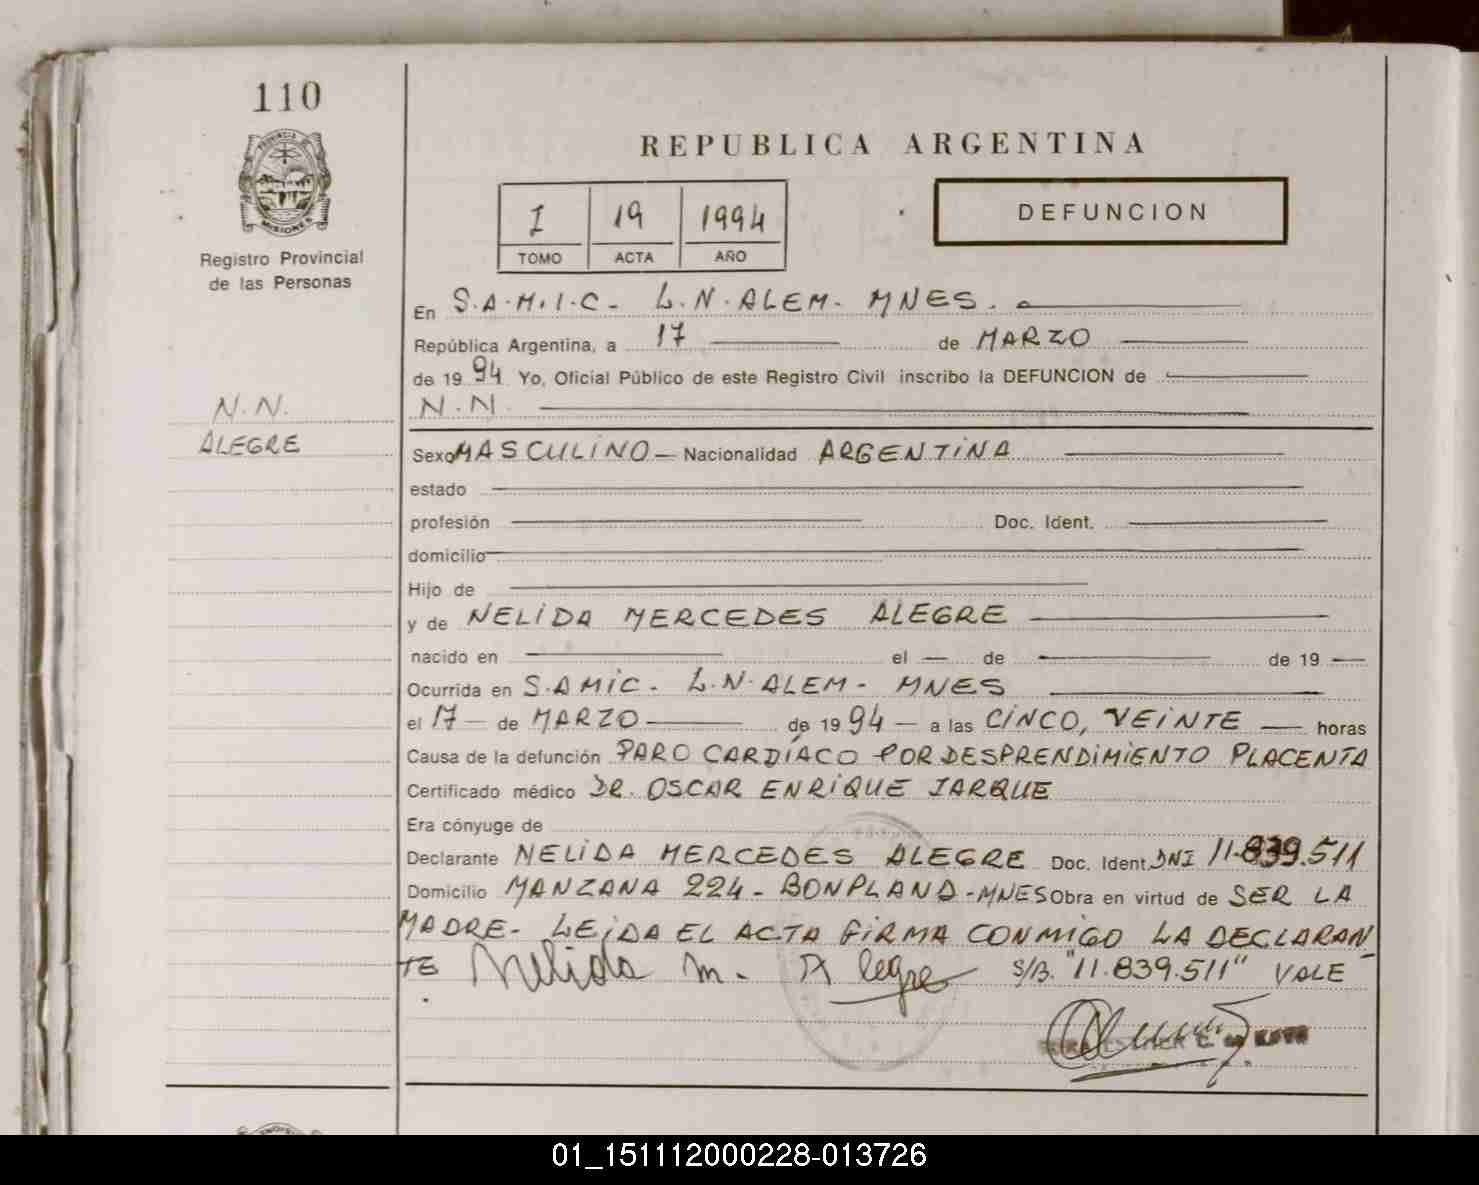 110
PROVINCIA
MISIONES
Registro Provincial
de las Personas
N.N.
ALEGRE
REPUBLICA ARGENTINA
I 19 1994
TOMO ACTA AÑO
DEFUNCION
En S.A.M.I.C- L.N.ALEM- MNES.
República Argentina, a 17 de MARZO
de 1994 Yo, Oficial Público de este Registro Civil inscribo la DEFUNCION de
N.N.
Sexo MASCULINO - Nacionalidad ARGENTINA
estado
profesión Doc. Ident.
domicilio
Hijo de
y de NELIDA MERCEDES ALEGRE
nacido en el — de de 19 —
Ocurrida en S.AMIC- L.N.ALEM- MNES
el 17 — de MARZO de 1994 — a las CINCO, VEINTE — horas
Causa de la defunción PARO CARDÍACO POR DESPRENDIMIENTO PLACENTA
Certificado médico DR. OSCAR ENRIQUE JARQUE
Era cónyuge de
Declarante NELIDA MERCEDES ALEGRE Doc. Ident. DNI 11.839.511
Domicilio MANZANA 224- BONPLAND-MNES Obra en virtud de SER LA
MADRE- LEIDA EL ACTA FIRMA CONMIGO LA DECLARAN
TE Nelida M. Alegre S/B. "11.839.511" VALE
01_151112000228-013726